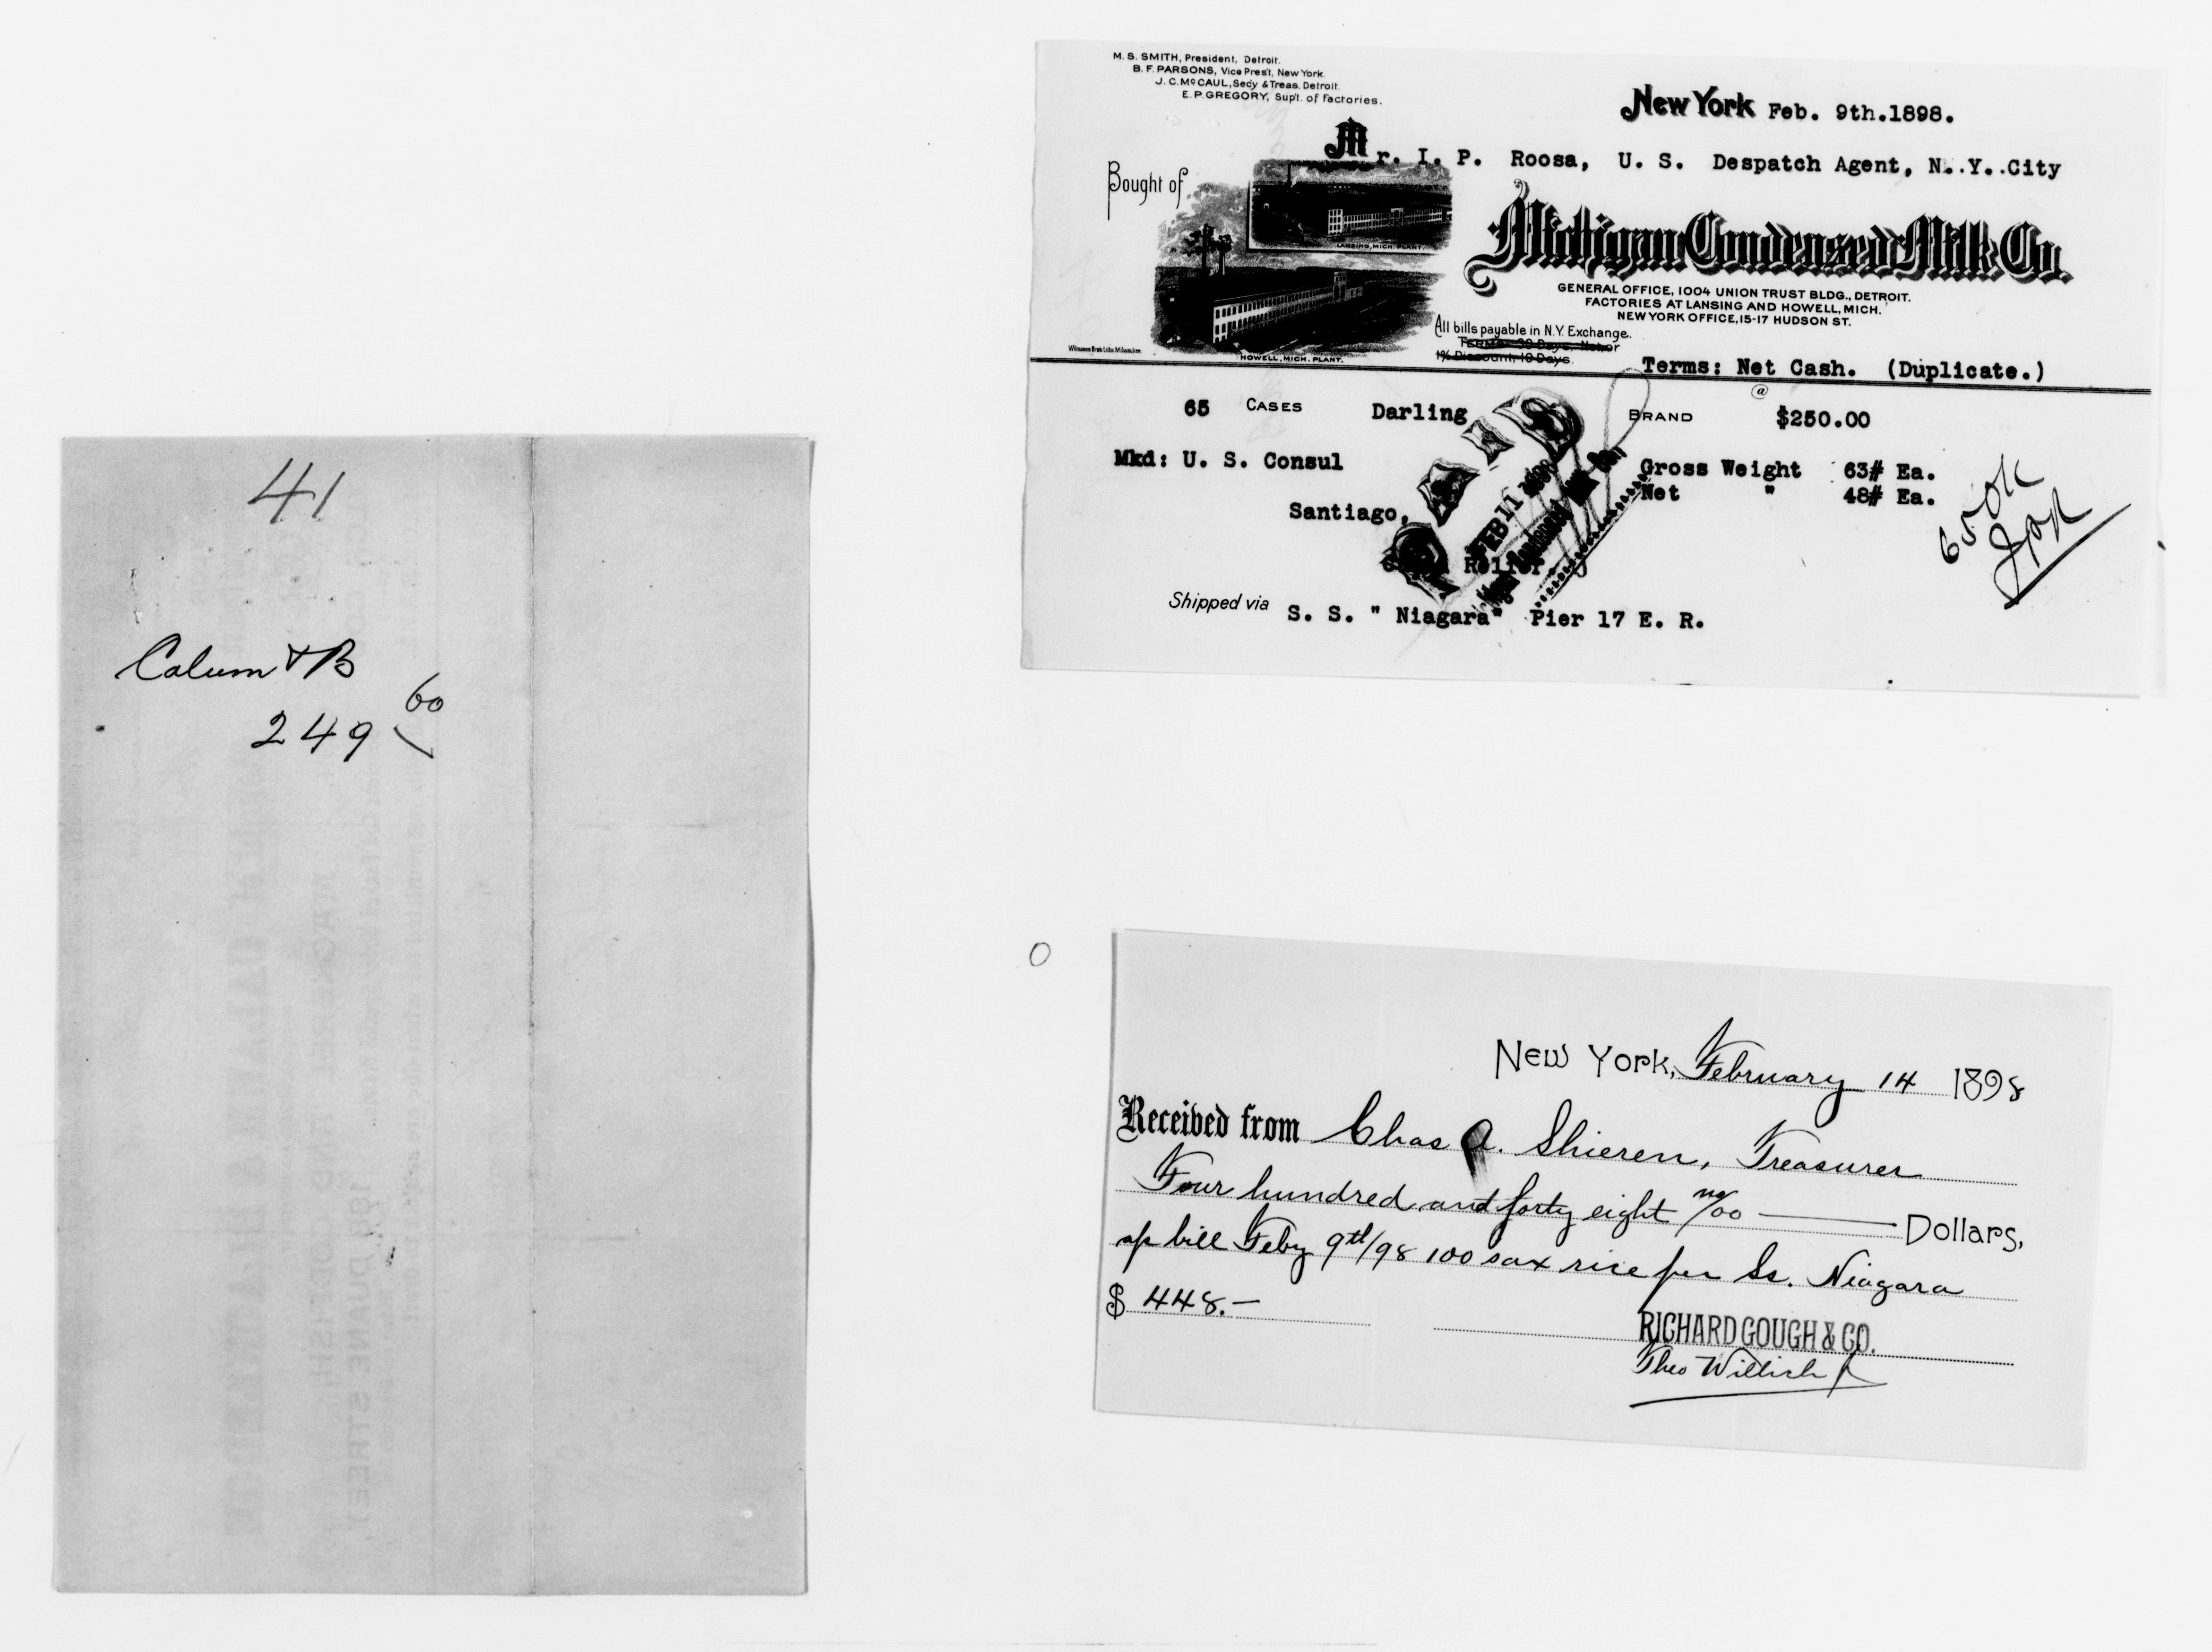 41
Calum & B
249 60
M. S. SMITH, President, Detroit.
B. F. PARSONS, Vice Pres't, New York.
J. C. McCAUL, Secy & Treas. Detroit.
E. P. GREGORY, Sup't. of Factories.
New York Feb. 9th.1898.
Mr. I. P. Roosa, U. S. Despatch Agent, N..Y..City
Bought of
Michigan Condensed Milk Co.
LANSING, MICH. PLANT.
GENERAL OFFICE, 1004 UNION TRUST BLDG., DETROIT.
FACTORIES AT LANSING AND HOWELL, MICH.
NEW YORK OFFICE, 15-17 HUDSON ST.
All bills payable in N.Y. Exchange.
TERMS: 30 Days, Net, or
1% Discount, 10 Days.
HOWELL, MICH. PLANT.
Terms: Net Cash. (Duplicate.)
65 CASES Darling BRAND @ $250.00
Mkd: U. S. Consul
Gross Weight 63# Ea.
Net " 48# Ea.
Santiago,
PAID
FEB 11
Relief
650k
Shipped via S. S. " Niagara" Pier 17 E. R.
New York, February 14 1898
Received from Chas A. Shieren, Treasurer
Four hundred and forty eight no/00 Dollars,
ap bill Feby 9th/98 100 sax rice per Ss. Niagara
$ 448.-
RICHARD GOUGH & CO.
Theo Willich